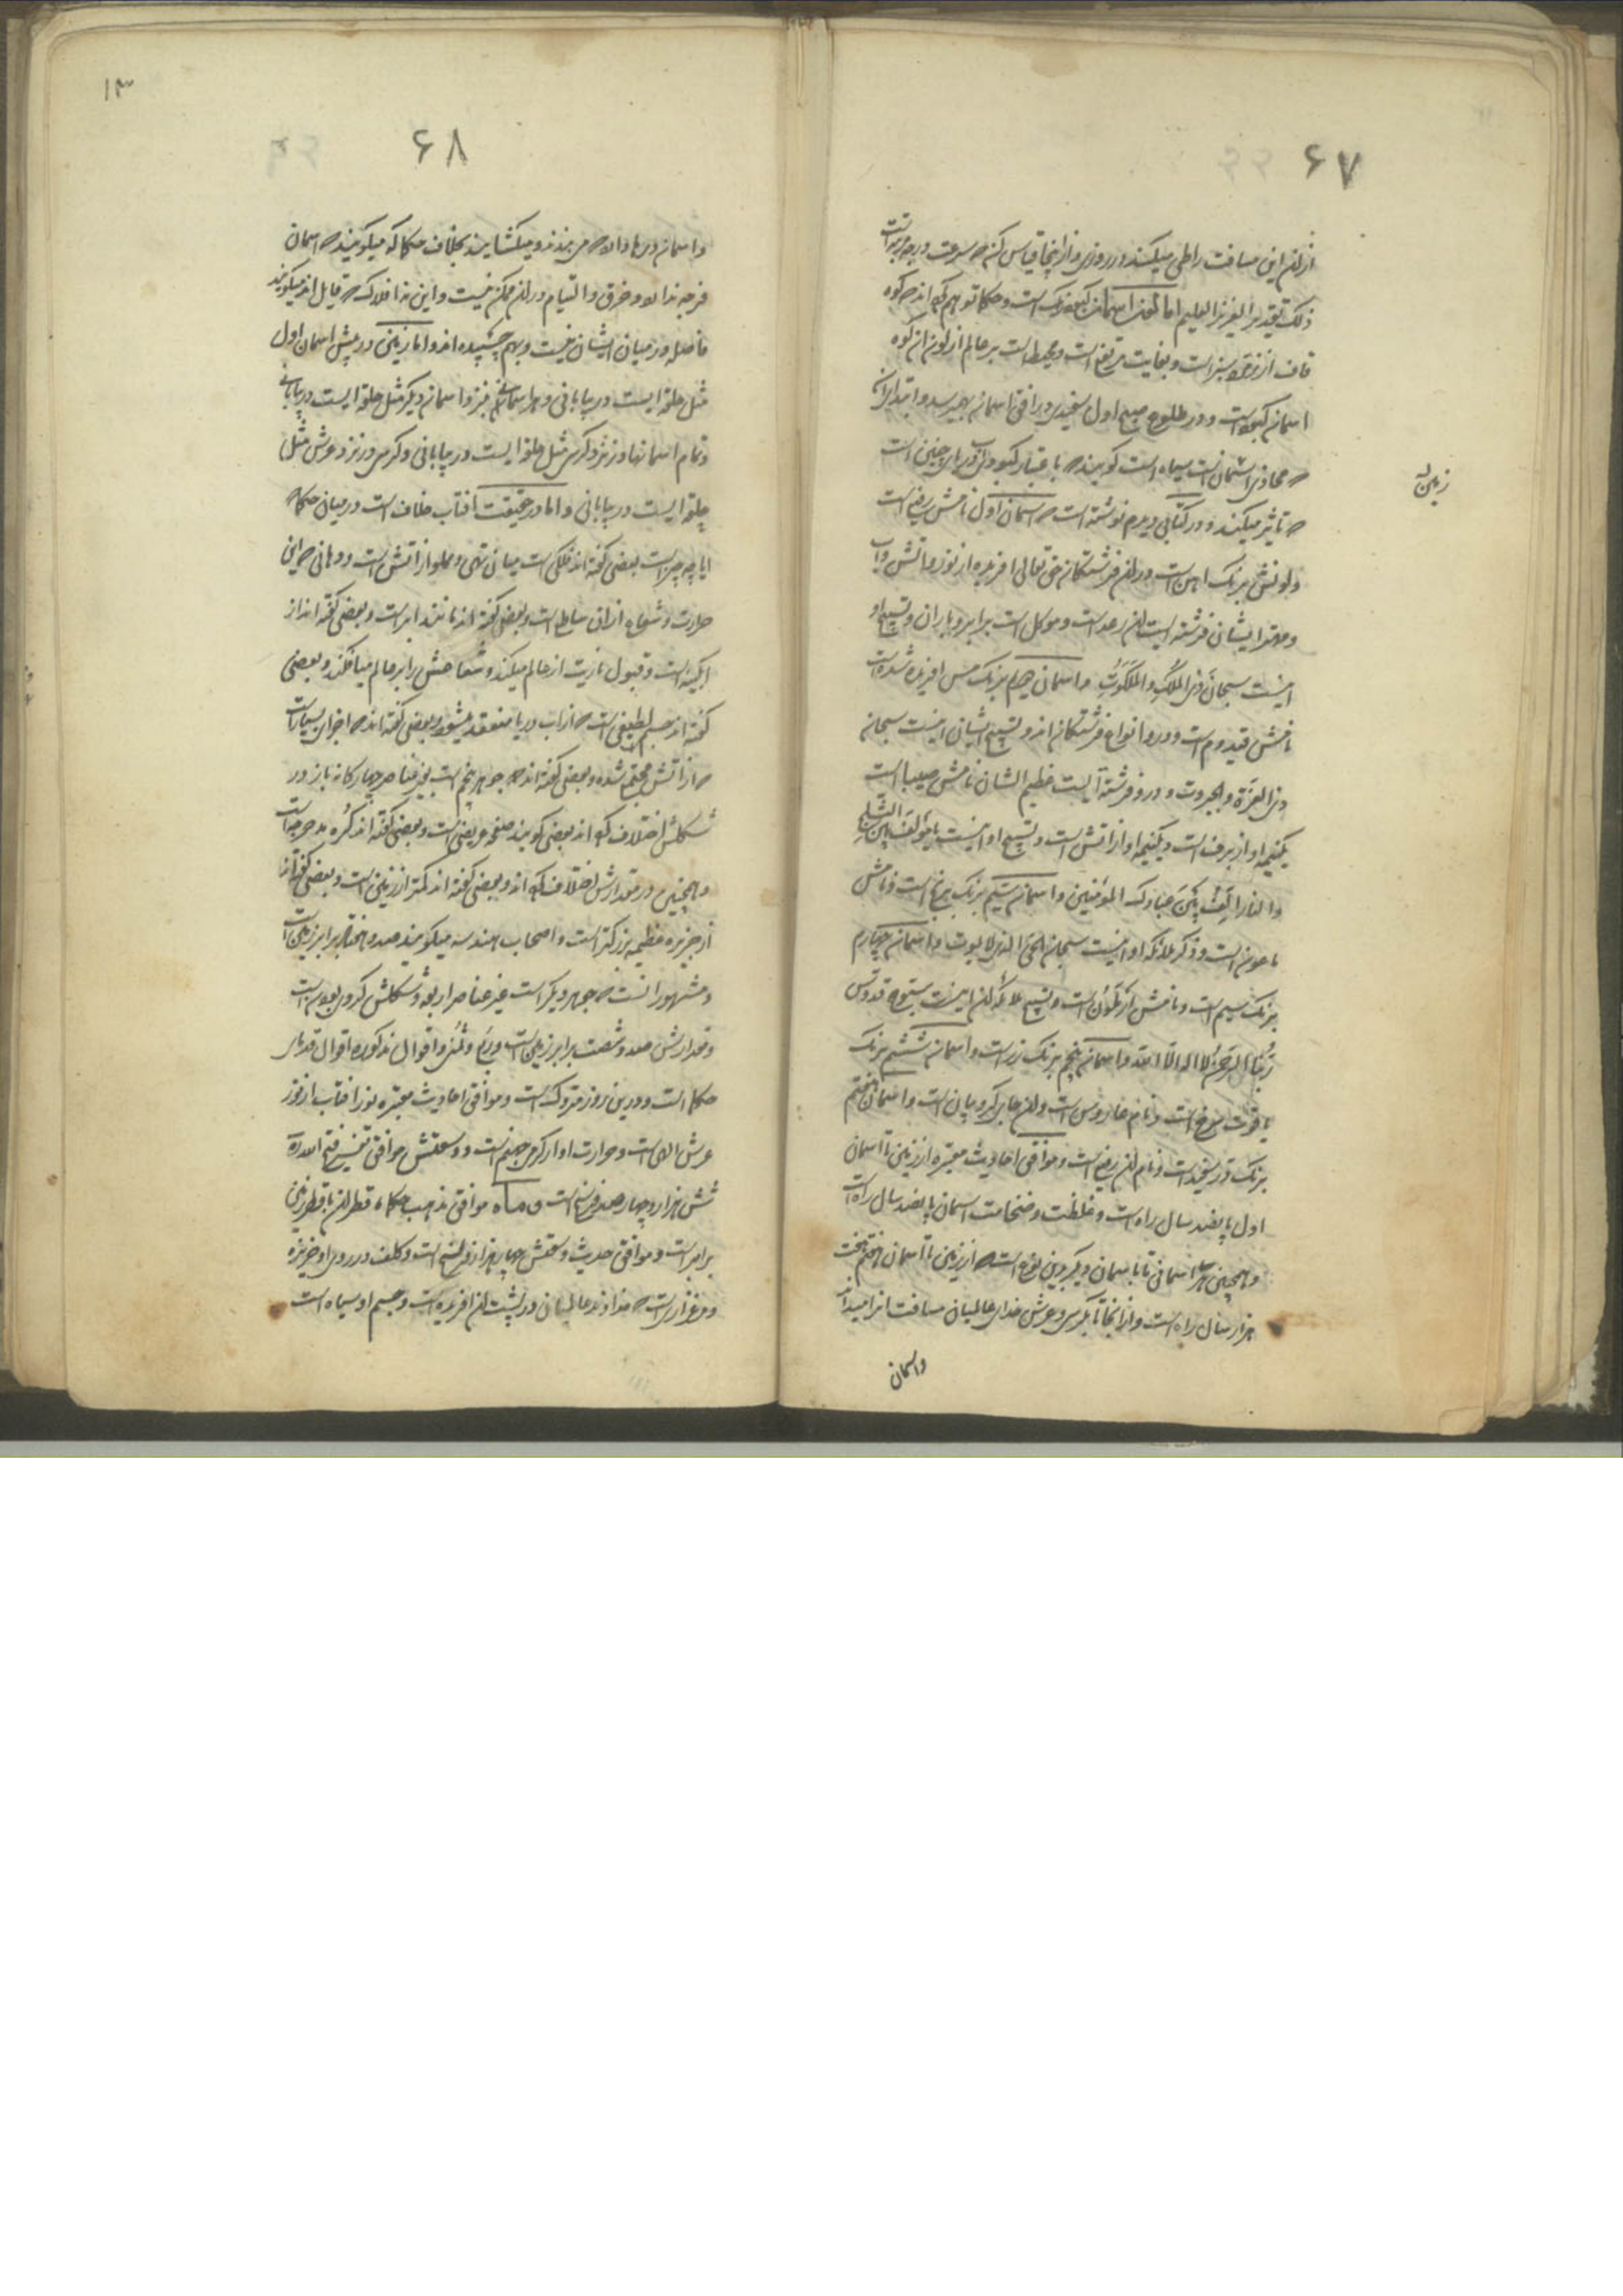 ۶۷
از ان این مسافت را طی میکند در روزی و از اینجا قیاس کن که سرعت و بچه مرتبه است
ذلک تقدیر العزیز العلیم اما لون اسمان کبود است و حکما توهم کرده اند که کوه
قاف از زمرد سبز است و بغایت مرتفع است و محیط است بر عالم از لون ان کوه
اسمان کبود است و در طلوع صبح اول سفیدی در افق اسمان بهم میرسد و ابتدای
که محاذی است سیاه است گویند که باعتبار کبودی دریای چنین است
که تاثیر میکند و در کتابی دیدم نوشته است که اسمان اول نامش رفیع است
و لونش برنک اهن است و در ان فرشتکان حق تعالی افریده از نور و اتش و اب
و مهتر ایشان فرشته ایست ان رعد است و موکل است بر ابر و باران و تسبیح او
اینست سبحان ذی الملک و الملکوت و اسمان دویم برنک مس افریده شده است
نامش قیدوم است و درو انواع فرشتکان اند و تسبیح ایشان اینست سبحان
ذی العزة و الجبروت و درو فرشته ایست عظیم الشان نامش حبیبا است
یکنیمه او از برف است و یکنیمه او از اتش است و تسبیح او اینست یا مؤلف بین الثلج
و النار الف بین عبادک المؤمنین و اسمان سیم برنک برنج است و نامش
ماعون است و ذکر ملائکه او اینست سبحان الحی الذی لا یموت و اسمان چهارم
برنک سیم است و نامش ارقلون است و تسبیح ملائکه ان اینست سبوح قدوس
ربنا الرحمن لا اله الا الله و اسمان پنجم برنک زر است و اسمان ششم برنک
یاقوت سرخ است و نام عاروس است و ان جای کروبیان است و اسمان هفتم
برنک در سفید است و نام ان رفیع است و موافق احادیث معتبره از زمین تا اسمان
اول پانصد سال راه است و غلظت و ضخامت اسمان پانصد سال راه است
و همچنین هر اسمانی تا باسمان دیگر بدین نوع است که از زمین تا اسمان هفتم هفت
هزار سال راه است و از انجا تا بکرسی و عرش خدای عالمیان مسافت انرا میداند
واسمان
زمین
۱۳
۶۸
و اسمان درها دارد که می بندند و میکشایند بخلاف حکما که میگویند که اسمان
فرجه ندارد و خرق و التیام در ان ممکن نیست و این نه افلاک که قایل اند میگویند
فاصله در میان ایشان نیست و بهم چسپیده اند و اما زمین در پیش اسمان اول
مثل حلقه ایست در بیابانی و هر اسمانی نیز نزد اسمان دیگر مثل حلقه ایست در بیابانی
و تمام اسمانها در نزد کرسی مثل حلقه ایست در بیابانی و کرسی در نزد عرش مثل
حلقه ایست در بیابانی و اما در حقیقت افتاب خلاف است در میان حکما که
ایا چه چیز است بعضی گفته اند فلکی است میان تهی و مملو از اتش است و دهانی که این
حرارت و شعاع از ان ساطع است و بعضی گفته اند مانند ابر است و بعضی گفته اند از
ابکینه است و قبول ناریت از عالم میکند و شعاعش را بر عالم میافکند و بعضی
گفته اند جسم لطیفی است که از اب دریا منعقد میشود و بعضی گفته اند که اجزای بسیار است
که از اتش مجتمع شده و بعضی گفته اند که جوهر پنجم است بغیر عناصر چهارکانه باز در
شکلش اختلاف کرده اند بعضی گویند صفحه عریضی است و بعضی گفته اند کره مدحرجه است
و همچنین در مقدارش اختلاف کرده اند و بعضی گفته اند کمتر از زمین است و بعضی گفته اند
از جزیره عظیمه بزرکتر است و اصحاب هندسه میگویند صد و هفتاد برابر زمین است
و مشهور انست که جوهر دیگر است غیر عناصر اربعه و شکلش کروی بوده است
و مقدارش صد و شصت برابر زمین است و ربع و ثمن و اقوال مذکوره اقوال قدمای
حکما است و درین روز متروک است و موافق احادیث معتبره نور افتاب از نور
عرش الهی است و حرارت او از کرمی جهنم است و وسعتش موافق تفسیر فتح الله
شش هزار و چهار صد فرسخ است و ماه موافق مذهب حکماء قطر ان با قطر زمین
برابر است و موافق حدیث وسعتش چهار هزار فرسخ است و کلف در روی او جزیره
و مرغزاری است که خداوند عالمیان در پشت ان افریده است و جسم او سیاه است